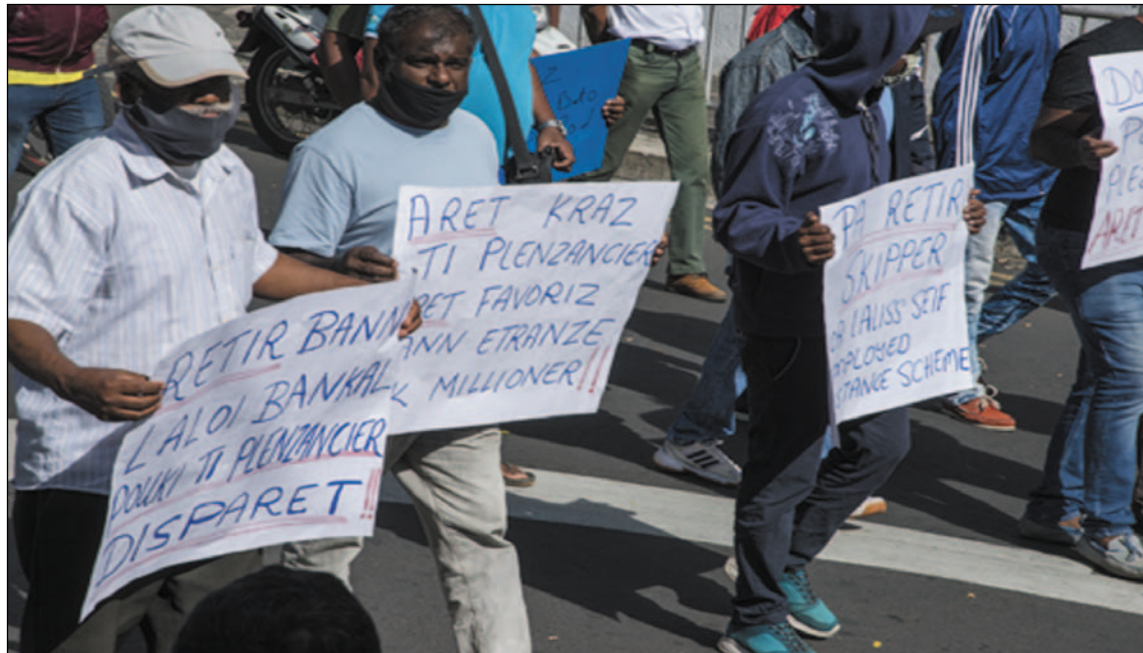 RETIR BANN
LALOI BANKAL
POUKI TI PLENZANCIER
DISPARET!!
ARET KRAZ
TI PLENZANCIER
RET FAVORIZ
ANN ETRANZE
K MILLIONER!!
PA RETIR
SKIPPER
LALISS SEIF
MPLOYED
STANCE SCHEME